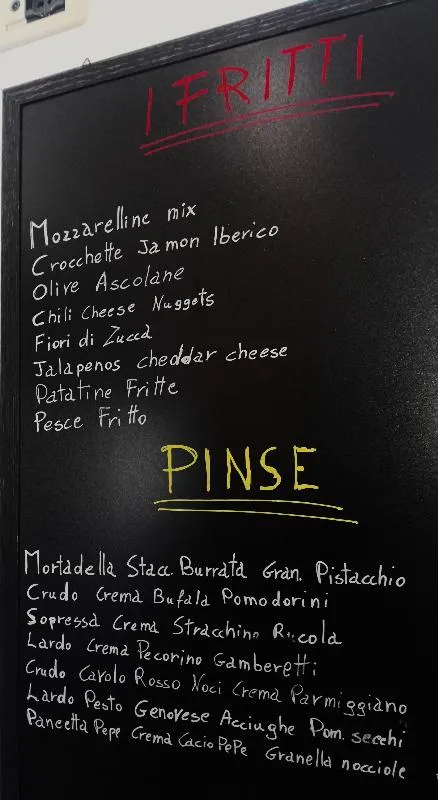 I FRITTI
Mozzarelline mix
Crocchette Jamon Iberico
Olive Ascolane
Chili Cheese Nuggets
Fiori di Zucca
Jalapenos cheddar cheese
Patatine Fritte
Pesce Fritto
PINSE
Mortadella Stacc. Burrata Gran. Pistacchio
Crudo Crema Bufala Pomodorini
Sopressa Crema Stracchino Rucola
Lardo Crema Pecorino Gamberetti
Crudo Cavolo Rosso Noci Crema Parmiggiano
Lardo Pesto Genovese Acciughe Pom. secchi
Pancetta Pepe Crema Cacio PePe Granella nocciole